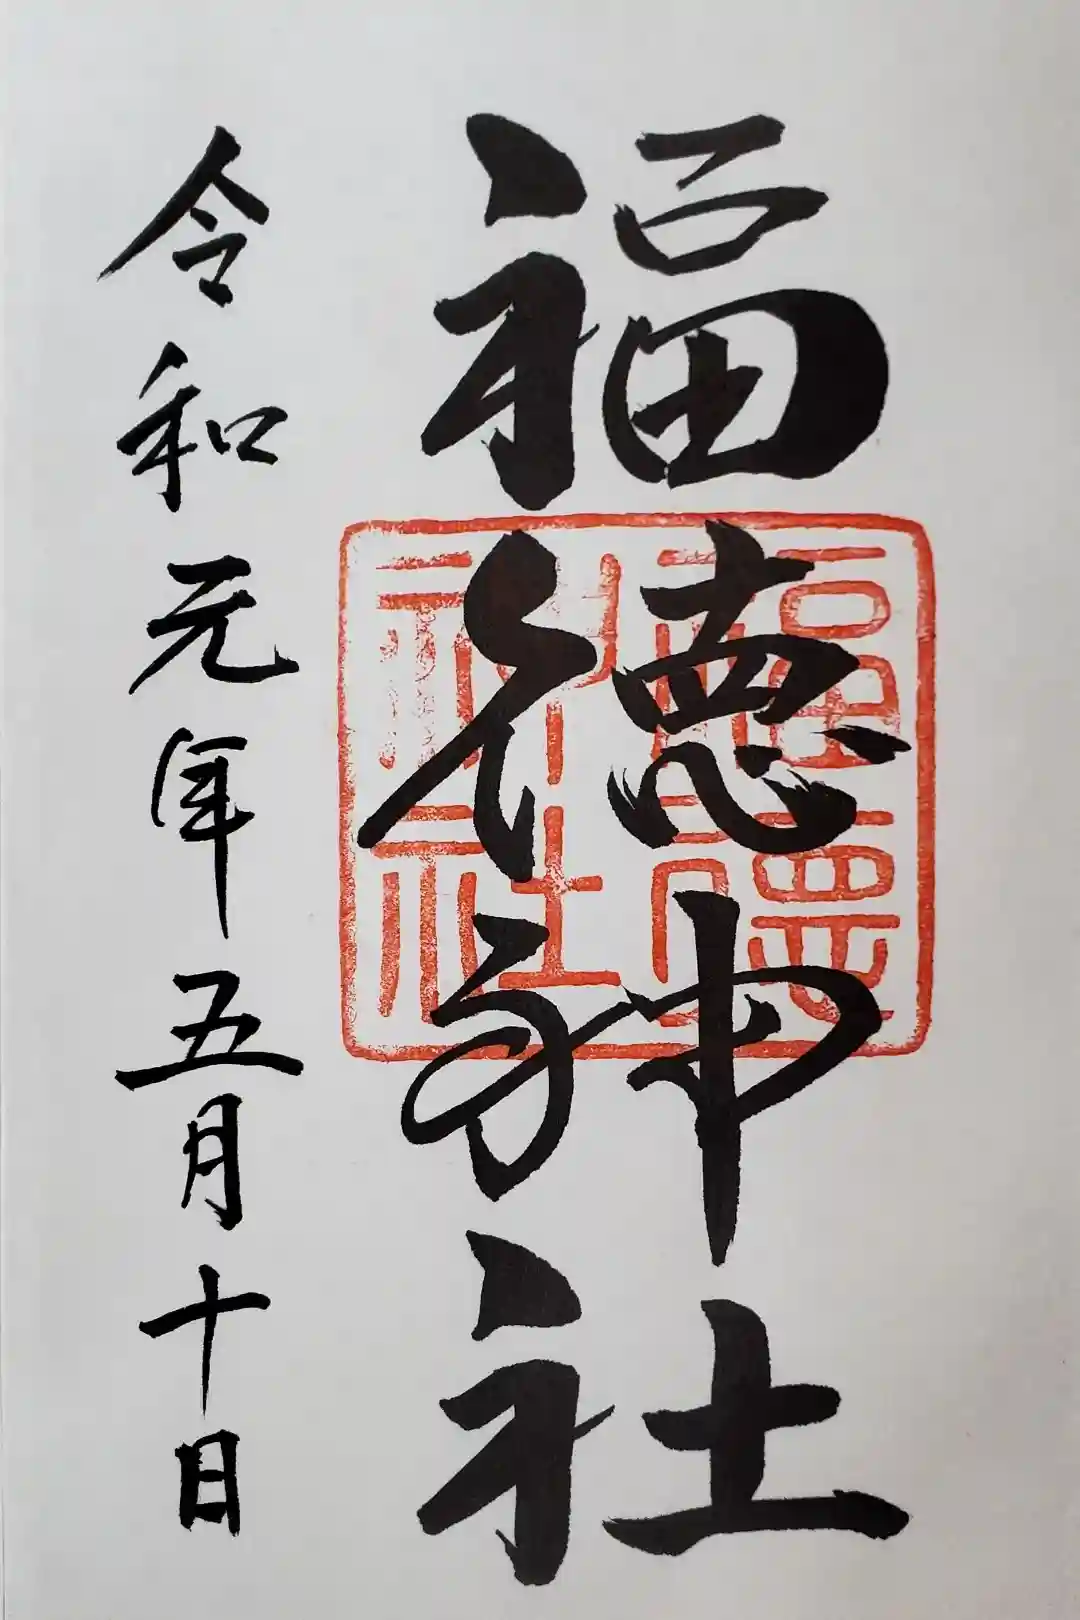 福徳神社
福徳神社
令和元年五月十日